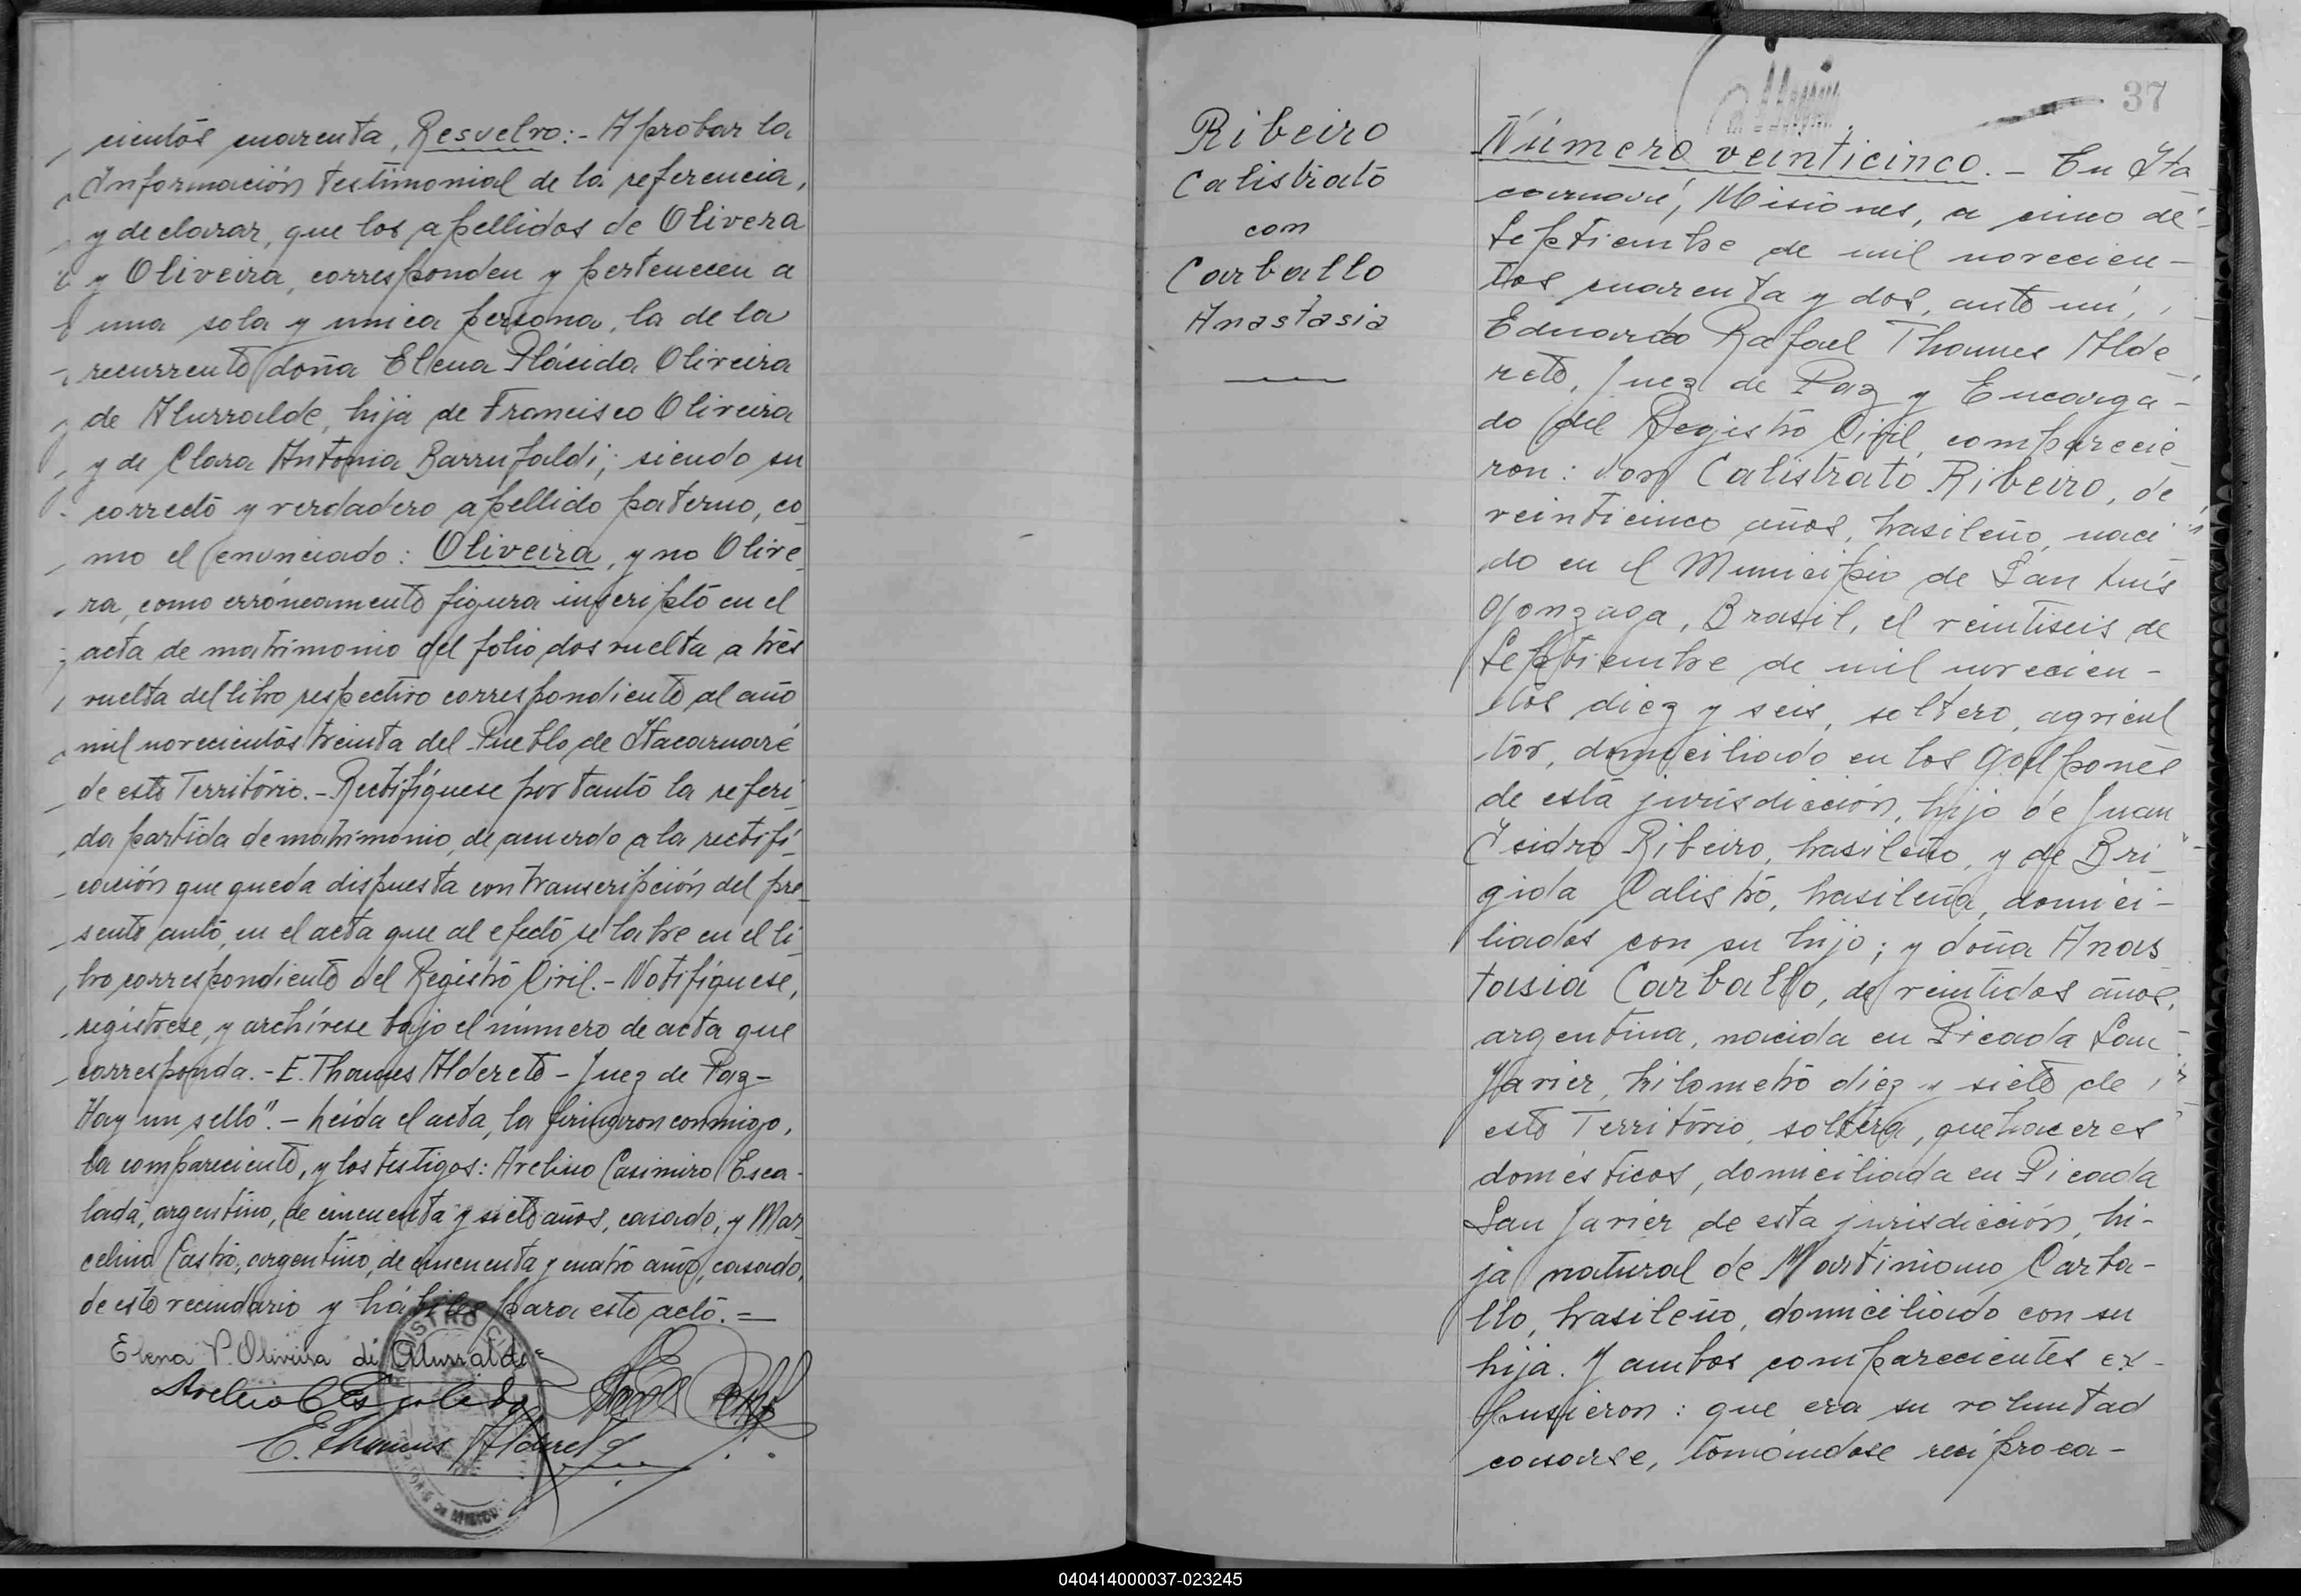 cientos cuarenta, Resuelvo:- Aprobar la
Información testimonial de la referencia,
y declarar, que los apellidos de Olivera
y Oliveira, corresponden y pertenecen a
una sola y unica persona, la de la
recurrente doña Elena Plácida Oliveira
de Alurralde, hija de Francisco Oliveira
y de Clara Antonia Barrufaldi; siendo su
correcto y verdadero apellido paterno, co-
mo el enunciado: Oliveira, y no Olive-
ra, como erróneamente figura inscripto en el
acta de matrimonio del folio dos vuelta a tres
vuelta del libro respectivo correspondiente al año
mil novecientos treinta del Pueblo de Itacaruaré
de este Territorio.- Rectifíquese por tanto la referi-
da partida de matrimonio, de acuerdo a la rectifi-
cación que queda dispuesta con transcripción del pre-
sente auto, en el acta que al efecto se labre en el li-
bro correspondiente del Registro Civil.- Notifíquese,
regístrese, y archívese bajo el número de acta que
corresponda.- E. Thames Alderete - Juez de Paz -
Hay un sello".- Leída el acta, la firmaron conmigo,
la compareciente, y los testigos: Avelino Casimiro Esca-
lada, argentino, de cincuenta y siete años, casado, y Mar-
celino Castro, argentino, de cincuenta y cuatro años, casado,
de este vecindario y hábiles para este acto.=
Elena P. Oliveira de Alurralde
Avelino C Escalada
E. Thames Alderete
Ribeiro
Calistrato
con
Carballo
Anastasia
37
Número veinticinco.- En Ita-
caruaré, Misiones, a cinco de
septiembre de mil novecien-
tos cuarenta y dos, ante mí,
Eduardo Rafael Thames Alde-
rete, Juez de Paz y Encarga-
do del Registro Civil, comparecie-
ron: don Calistrato Ribeiro, de
veinticinco años, brasileño, naci-
do en el Municipio de San Luís
Gonzaga, Brasil, el veintiseis de
septiembre de mil novecien-
tos diez y seis, soltero, agricul
tor, domiciliado en los Galpones
de esta jurisdicción, hijo de Juan
Isidro Ribeiro, brasileño, y de Bri-
gida Calistro, brasileña, domici-
liados con su hijo; y doña Anas
tasia Carballo, de veintidos años,
argentina, nacida en Picada San
Javier, kilometro diez y siete de
este Territorio, soltera, quehaceres
domésticos, domiciliada en Picada
San Javier de esta jurisdicción, hi-
ja natural de Martiniano Carba-
llo, brasileño, domiciliado con su
hija. Y ambos comparecientes ex-
pusieron: que era su voluntad
casarse, tomándose recíproca-
040414000037-023245